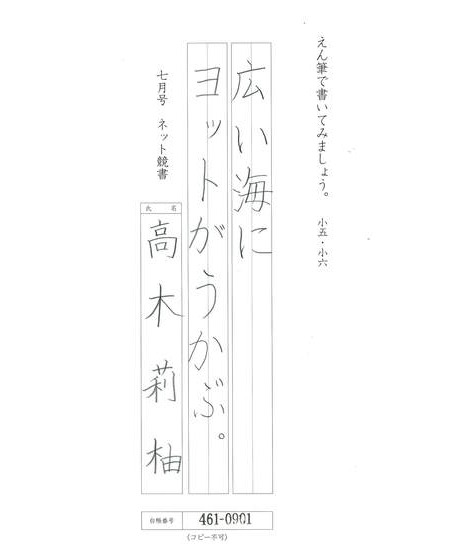 えん筆で書いてみましょう。 小五・小六
広い海に
ヨットがうかぶ。
七月号 ネット競書
氏名
高木莉柚
台帳番号 461-0901
(コピー不可)